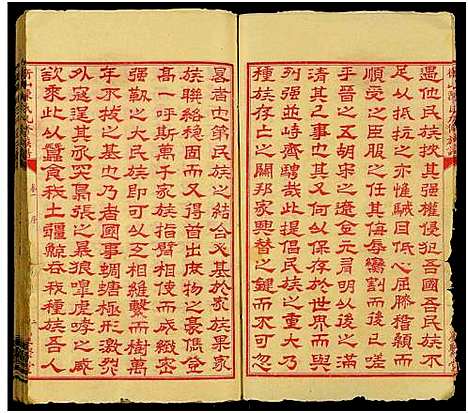 遇他民族挾其強權侵犯吾國吾民族不
足以抵抗之亦惟馘目低心屈膝稽顙而
順受之臣服之任其侮辱臠割而後已嗟
乎晉之五胡宋之遼金元有明以後之滿
清其已事也其又何以保存於世界而與
種族並峙齊驅哉此提倡民族之重大乃
族存滅之關邦家興替之鍵而不可忽
畧者也第民族之結合必基於家族果家
族聯絡穩固而又得首出庶物之豪傑登
高一呼斯萬千家族指臂相使而成織至
強勒之大民族即可以至相維繫而樹萬
年不拔之基也乃者國事蜩螗極形激烈
外寇逞其亦臬張之暴狼嘷虎哮之威
欲乘此以蠶食我土疆鯨吞我種族吾人